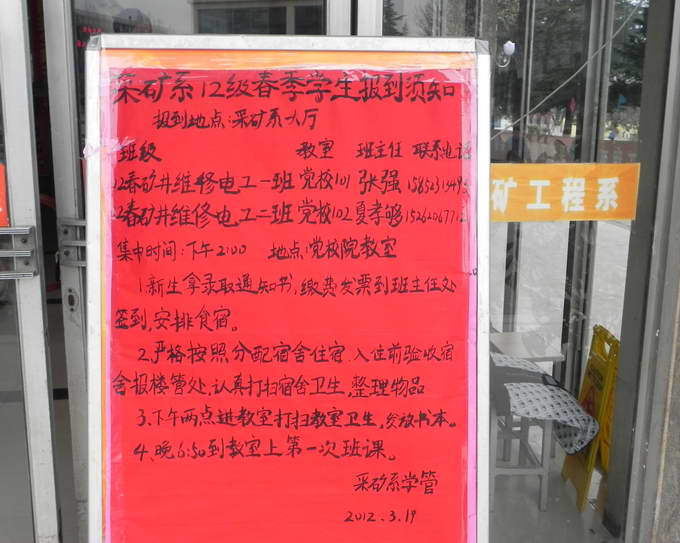 采矿系12级春季学生报到须知
报到地点:采矿系大厅
班级 教室 班主任 联系电话
12春矿井维修电工一班 党校101 张强
12春矿井维修电工二班 党校102 夏孝够
集中时间:下午2:00 地点:党校院教室
1.新生拿录取通知书,缴费发票到班主任处
签到,安排食宿。
2.严格按照分配宿舍住宿.入住前验收宿
舍报楼管处,认真打扫宿舍卫生,整理物品
3.下午两点进教室打扫教室卫生,发放书本。
4、晚6:50到教室上第一次班课。
采矿系学管
2012.3.19
矿工程系